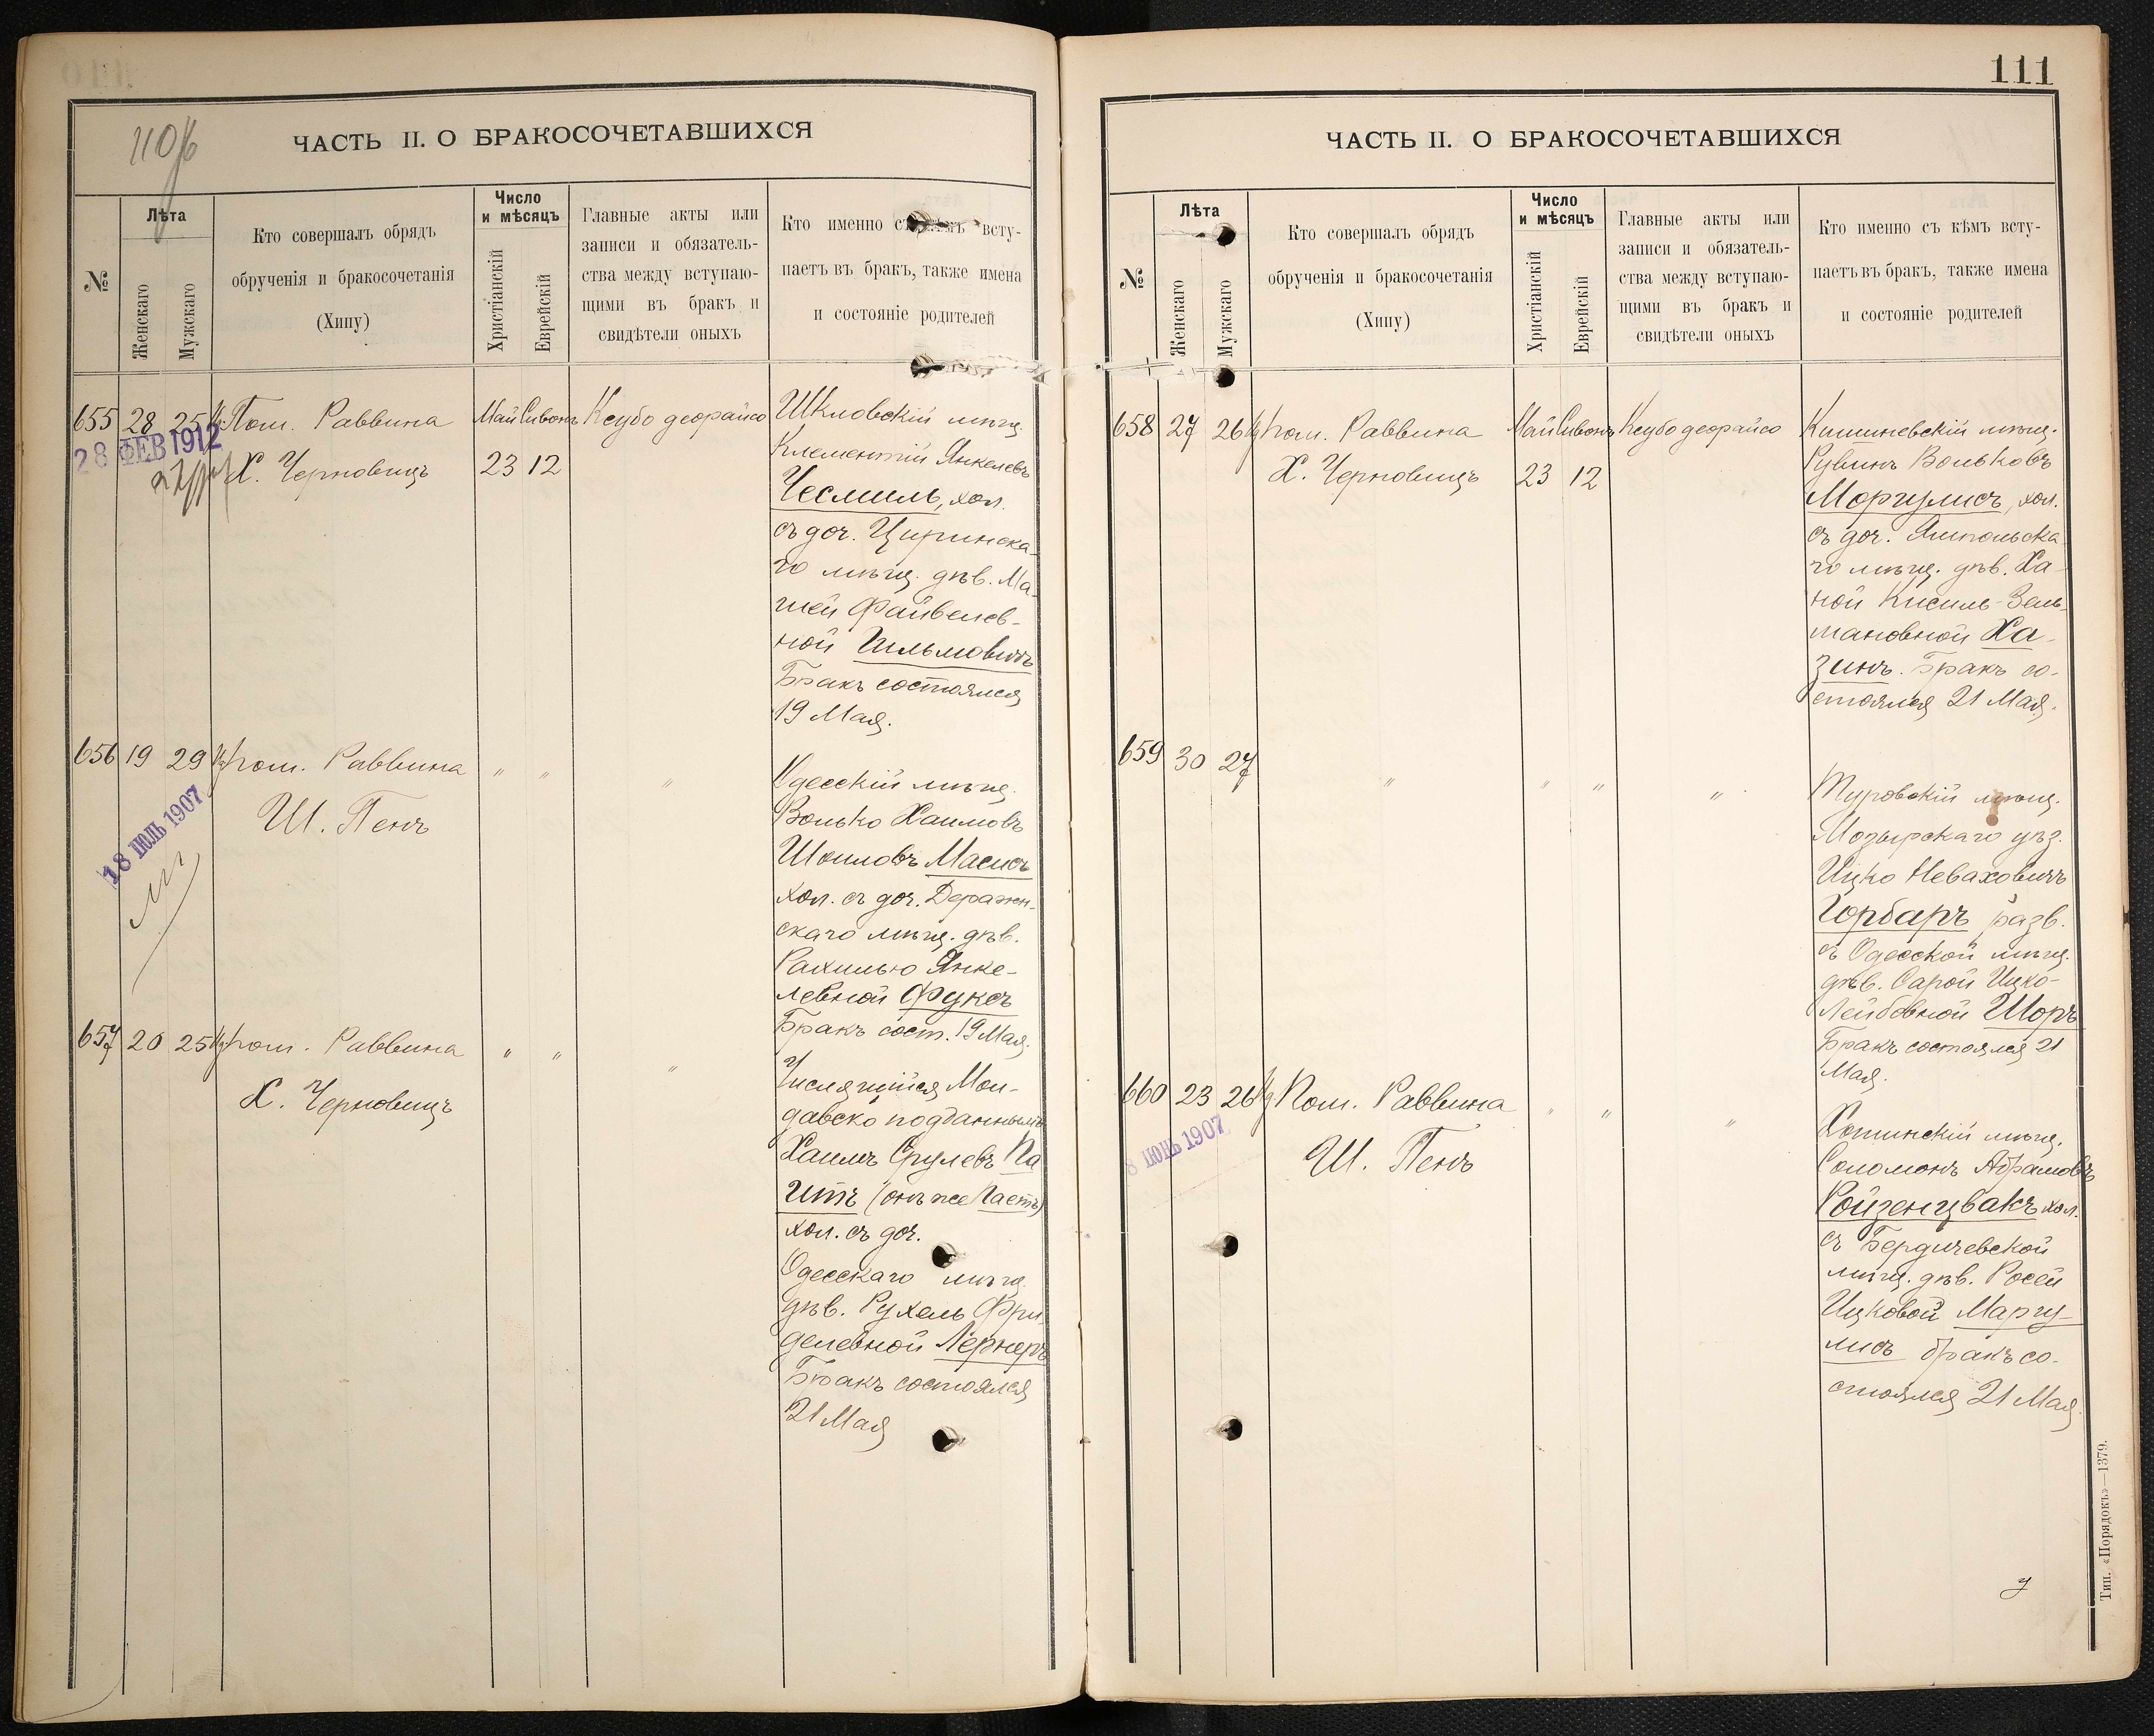 110 об
ЧАСТЬ II. О БРАКОСОЧЕТАВШИХСЯ
№
Лѣта
Женскаго
Мужскаго
Кто совершалъ обрядъ
обрученія и бракосочетанія
(Хипу)
Число
и мѣсяцъ
Христіанскій
Еврейскій
Главные акты или
записи и обязатель-
ства между вступаю-
щими въ бракъ и
свидѣтели оныхъ
Кто именно съ кѣмъ всту-
паетъ въ бракъ, также имена
и состояніе родителей
655 28 25 Пом. Раввина Май Сивонъ Ксубо деорайсо Шкловскій мѣщ.
28 ФЕВ 1912
Х. Черновицъ 23 12 Клементій Янкелевъ
Чесмиль, хол.
съ доч. Цирин​ска-
го мѣщ. дѣв. Ма-
ней Файвелев-
ной Гильмовичъ
Бракъ состоялся
19 Мая.
656 19 29 Пом. Раввина " " " Одесскій мѣщ.
Ш. Пенъ Волько Хаимовъ
18 ІЮЛЬ 1907
Шоиловъ Масисъ
хол. съ доч. Дераж​н-
скаго мѣщ. дѣв.
Рахилью Янке-
левной Фуксъ
Бракъ сост. 19 Мая.
657 20 25 Пом. Раввина " " " Числящійся Мол-
Х. Черновицъ давско подданнымъ
Хаимъ Срулевъ Па
итъ (онъ же Паетъ)
хол. съ доч.
Одесскаго мѣщ.
дѣв. Рухель Фри-
делевной Лернеръ
Бракъ состоялся
21 Мая
111
ЧАСТЬ II. О БРАКОСОЧЕТАВШИХСЯ
№
Лѣта
Женскаго
Мужскаго
Кто совершалъ обрядъ
обрученія и бракосочетанія
(Хипу)
Число
и мѣсяцъ
Христіанскій
Еврейскій
Главные акты или
записи и обязатель-
ства между вступаю-
щими въ бракъ и
свидѣтели оныхъ
Кто именно съ кѣмъ всту-
паетъ въ бракъ, также имена
и состояніе родителей
658 27 26 Пом. Раввина Май Сивонъ Ксубо деорайсо Кишиневскій мѣщ.
Х. Черновицъ 23 12 Рувинъ Вольковъ
Моргулисъ, хол.
съ доч. Ямпольска
го мѣщ. дѣв. Ха-
ной Кисиль-Зель-
мановной Ха-
зинъ. Бракъ со-
стоялся 21 Мая.
659 30 27 " " " " Туровскій мѣщ.
Мозырскаго уѣз.
Ицко Неваховичъ
Горбаръ разв.
съ Одесской мѣщ.
дѣв. Сарой Ицко-
Лейбовной Шоръ
Бракъ состоялся 21
Мая.
660 23 26 Пом. Раввина " " " Хотинскій мѣщ.
8 ІЮНЬ 1907
Ш. Пенъ Соломонъ Абрамовъ
Ройзенцвакъ хол.
съ Бердичевской
мѣщ. дѣв. Росей
Ицковой Маргу-
лисъ бракъ со-
стоялся 21 Мая.
Тип. «Порядокъ»—1379.